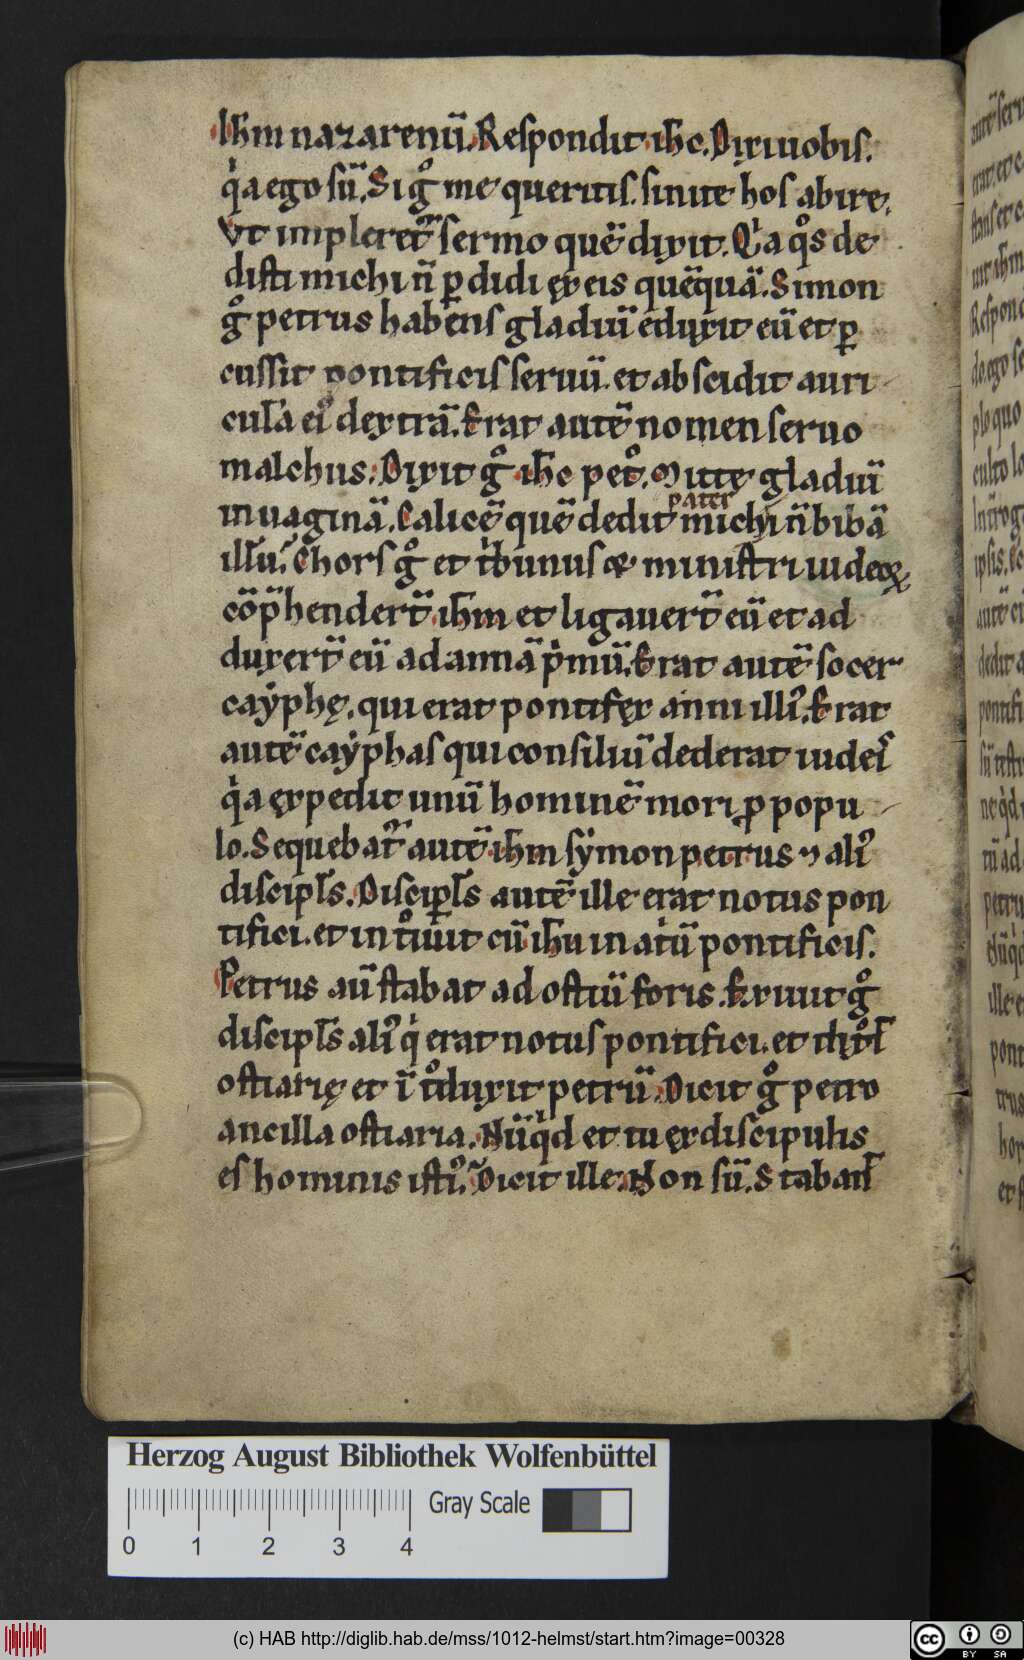 Ihm nazarenū. Respondit ihc. Dixi uobis.
qͥa ego sū. Si gͦ me queritis. sinite hos abire.
Vt impleret᷑ sermo quē dixit. Qͥa qͦs de
disti michi n̄ ꝑdidi ęx eis quēquā. Simon
gͦ petrus habens gladiū eduxit eū et ꝑ
cussit pontificis seruū. et abscidit auri
cul̄a eiꝰ dextrā. Erat autē nomen seruo
malchus. Dixit gͦ ihc petͦ. Mitte gladiū
pater
in uaginā. Calicē quē dedit michi n̄ bibā
ill̄u. Chors gͦ et tͥbunus et ministri iudeoꝝ
cōp̄hendert̄ ihm et ligauert̄ eū et ad
duxert̄ eū ad annā pͥmū. Erat autē socer
caẏphę. qui erat pontifex anni illiꝰ. Erat
autē caẏphas qui consiliū dederat iudeis
qͥa ęxpedit unū hominē mori ꝓ popu
lo. Sequebat᷑ autē ihm sẏmon petrus ⁊ aliꝰ
discipl̄s. Discipl̄s autē ille erat notus pon
tifici. et intͦiuit cū ihu in atͥū pontificis.
Petrus aū stabat ad ostiū foris. Exiuit gͦ
discipl̄s aliꝰ qͥ erat notus pontifici. et dix̄
ostiarię et ītͦduxit petrū. Dicit gͦ petro
ancilla ostiaria. Nūqͥd et tu ęx discipulis
es hominis istiꝰ. Dicit ille. Non sū. Stabant
Herzog August Bibliothek Wolfenbüttel
Gray Scale
0 1 2 3 4
(c) HAB http://diglib.hab.de/mss/1012-helmst/start.htm?image=00328
cc BY SA